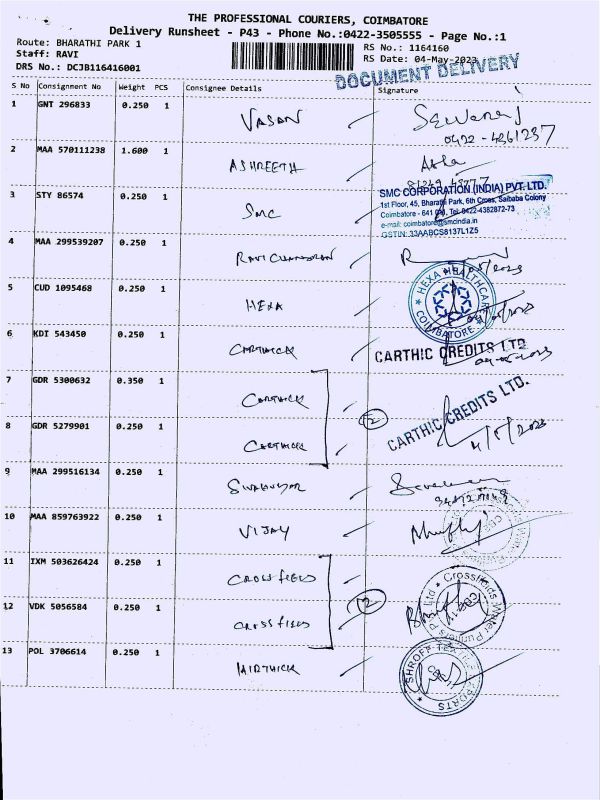 THE PROFESSIONAL COURIERS, COIMBATORE
Delivery Runsheet - P43 - Phone No.:0422-3505555 - Page No.:1
Route: BHARATHI PARK 1
RS No.: 1164160
Staff: RAVI
RS Date: 04-May-2023
DRS No.: DCJB116416001
DOCUMENT DELIVERY
S No Consignment No Weight PCS Consignee Details Signature
1 GNT 296833 0.250 1 VASAN
0422-4261237
2 MAA 570111238 1.600 1 ASHREETH
3 STY 86574 0.250 1 SMC
SMC CORPORATION (INDIA) PVT. LTD.
1st Floor, 45, Bharathi Park, 6th Cross, Saibaba Colony
Coimbatore - 641 Tel: 0422-4382872-73
e-mail: coimbatore@smcindia.in
GSTIN: 33AABCS8137L1Z5
4 MAA 299539207 0.250 1 RAVI CHANDRAN
5 CUD 1095468 0.250 1 HEXA
HEXA HEALTHCARE
COIMBATORE
6 KDI 543450 0.250 1 CARTHICK
CARTHIC CREDITS LTD
7 GDR 5300632 0.350 1 CARTHICK
2
CARTHIC CREDITS LTD.
8 GDR 5279901 0.250 1 CARTHICK
4/5/2023
9 MAA 299516134 0.250 1
10 MAA 859763922 0.250 1 VIJAY
11 IXM 503626424 0.250 1 CROSSFIELD
2
12 VDK 5056584 0.250 1 CROSSFIELD
13 POL 3706614 0.250 1
SHROFF TEX